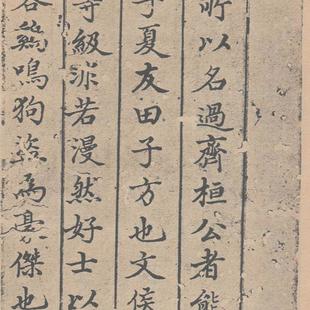 所以名過齊桓公者能
子夏友田子方也文侯
等級非若漫然好士以
雞鳴狗盜爲豪傑也